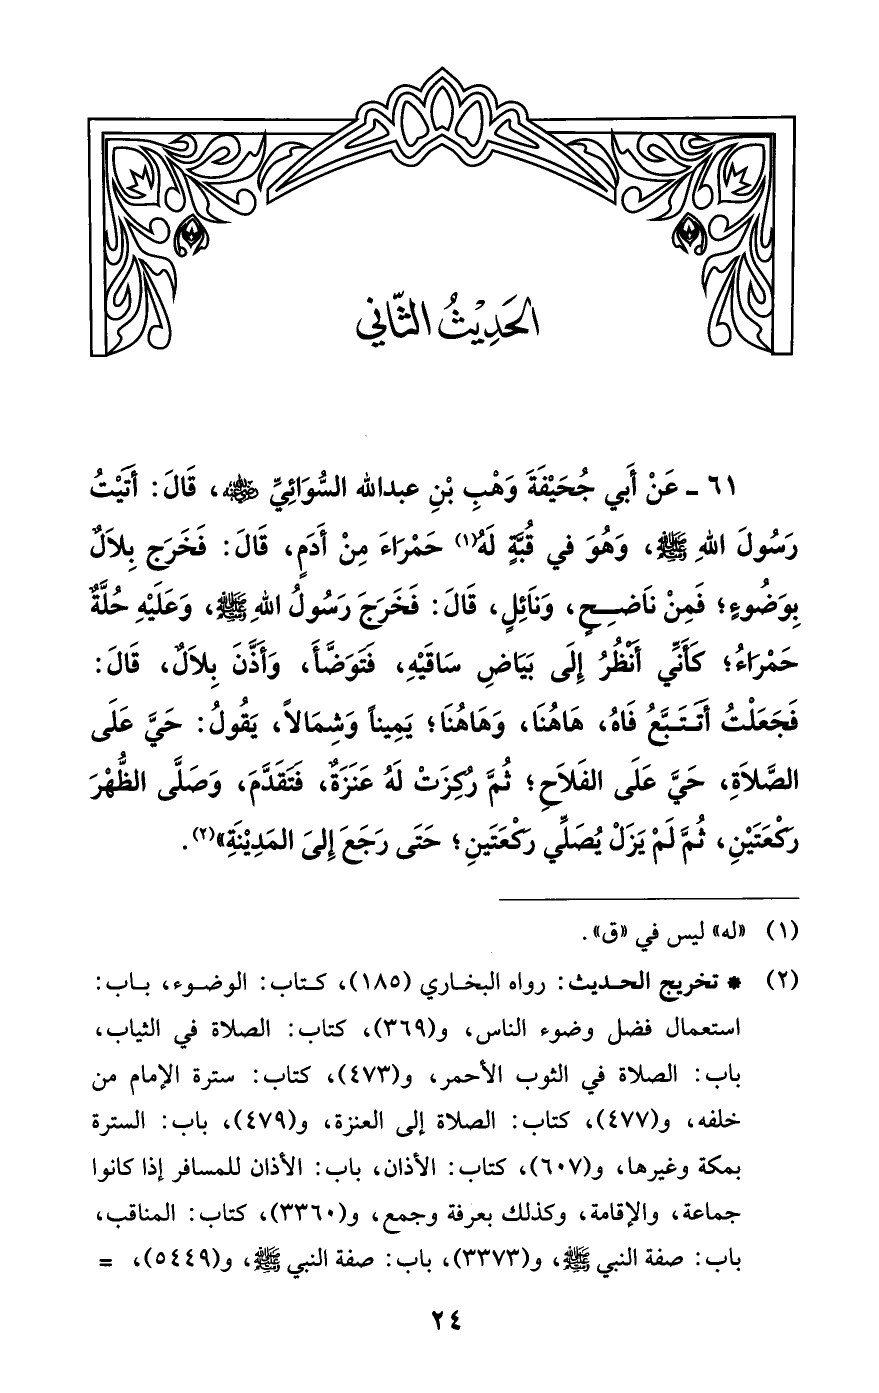 الحَدِيْثُ الثَّاني
٦١ - عَنْ أَبي جُحَيْفَةَ وَهْبِ بْنِ عبدالله السُّوَائِيِّ ﵁، قَالَ: أَتَيْتُ
رَسُولَ اللهِ ﷺ، وَهُوَ في قُبَّةٍ لَهُ(١) حَمْرَاءَ مِنْ أَدَمٍ، قَالَ: فَخَرَج بِلاَلٌ
بِوَضُوءٍ؛ فَمِنْ نَاضِحٍ، وَنَائِلٍ، قَالَ: فَخَرَجَ رَسُولُ اللهِ ﷺ، وَعَلَيْهِ حُلَّةٌ
حَمْرَاءُ؛ كَأَنِّي أَنْظُرُ إِلَى بَيَاضِ سَاقَيْهِ، فَتَوَضَّأَ، وَأَذَّنَ بِلاَلٌ، قَالَ:
فَجَعَلْتُ أَتَتَبَّعُ فَاهُ، هَاهُنَا، وَهَاهُنَا؛ يَمِيناً وَشِمَالاً، يَقُولُ: حَيَّ عَلَى
الصَّلاَةِ، حَيَّ عَلَى الفَلاَحِ؛ ثُمَّ رُكِزَتْ لَهُ عَنَزَةٌ، فَتَقَدَّمَ، وَصَلَّى الظُّهْرَ
رَكْعَتَيْنِ، ثُمَّ لَمْ يَزَلْ يُصَلِّي رَكْعَتَينِ؛ حَتَى رَجَعَ إِلىَ المَدِيْنَةِ»(٢).
(١) «له» ليس في «ق».
(٢) * تخريج الحديث: رواه البخاري (١٨٥)، كتاب: الوضوء، باب:
استعمال فضل وضوء الناس، و(٣٦٩)، كتاب: الصلاة في الثياب،
باب: الصلاة في الثوب الأحمر، و(٤٧٣)، كتاب: سترة الإمام من
خلفه، و(٤٧٧)، كتاب: الصلاة إلى العنزة، و(٤٧٩)، باب: السترة
بمكة وغيرها، و(٦٠٧)، كتاب: الأذان، باب: الأذان للمسافر إذا كانوا
جماعة، والإقامة، وكذلك بعرفة وجمع، و(٣٣٦٠)، كتاب: المناقب،
باب: صفة النبي ﷺ، و(٣٣٧٣)، باب: صفة النبي ﷺ، و(٥٤٤٩)، =
٢٤